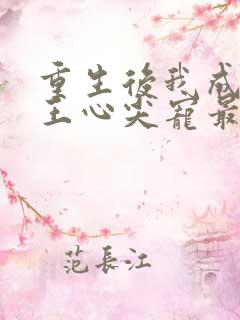 重生後我成
王心尖寵最
范長江